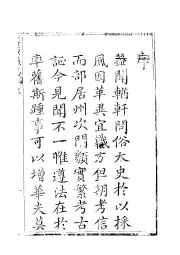 序
蓋聞輶軒問俗太史於以採
風因革異宜職方但期考信
而部居州次門類實繁考古
証今見聞不一惟遵法在於
率舊斯踵事可以增華夫莫